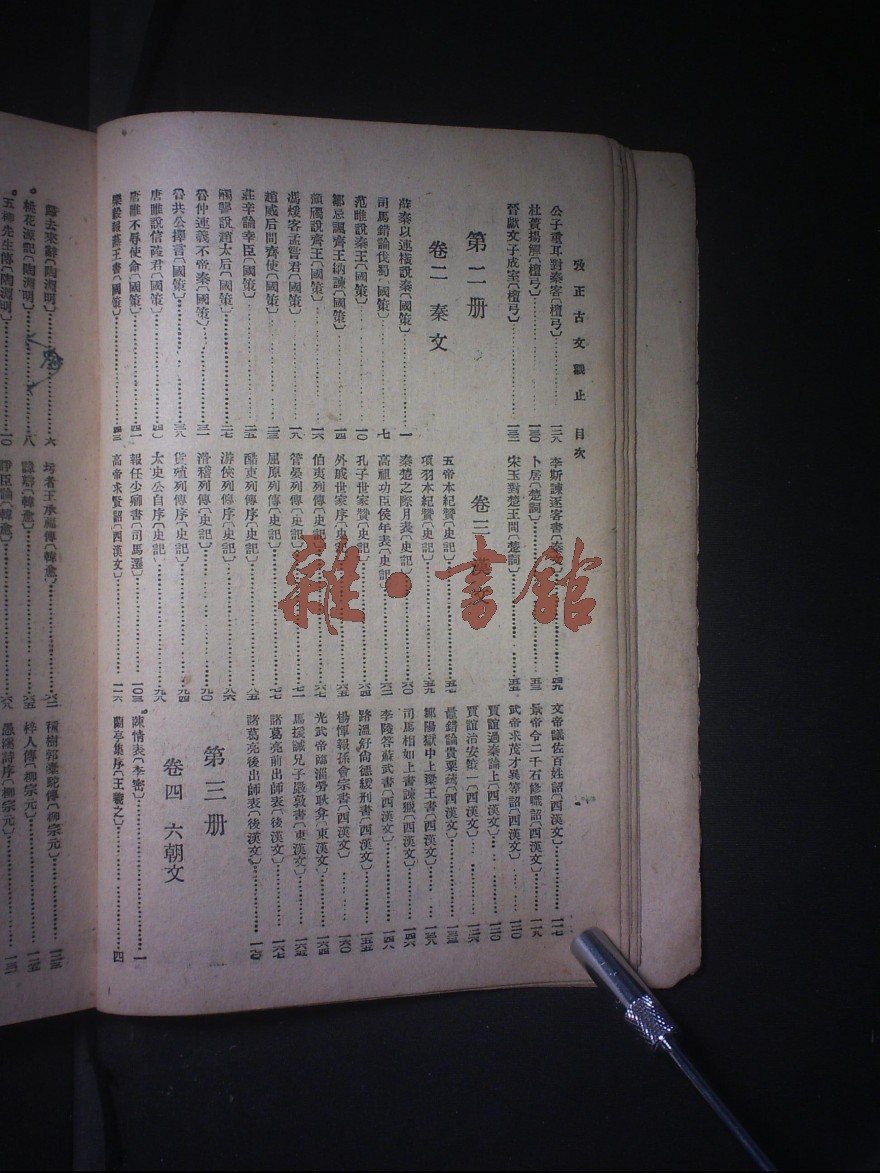 攷正古文觀止 目次
公子重耳對秦客〔檀弓〕……一二八
杜蕢揚觶〔檀弓〕……一三〇
晉獻文子成室〔檀弓〕……一三一
第二册
卷二 秦文
蘇秦以連橫說秦〔國策〕……一
司馬錯論伐蜀〔國策〕……七
范睢說秦王〔國策〕……一〇
鄒忌諷齊王納諫〔國策〕……一四
顏斶說齊王〔國策〕……一六
馮煖客孟嘗君〔國策〕……一八
趙威后問齊使〔國策〕……
莊辛論幸臣〔國策〕……二五
觸讋說趙太后〔國策〕……二七
魯仲連義不帝秦〔國策〕……三一
魯共公擇言〔國策〕……三八
唐睢說信陵君〔國策〕……四〇
唐睢不辱使命〔國策〕……四一
樂毅報燕王書〔國策〕……四三
李斯諫逐客書〔秦文〕……四九
卜居〔楚詞〕……五三
宋玉對楚王問〔楚詞〕……五五
卷三 漢文
五帝本紀贊〔史記〕……五七
項羽本紀贊〔史記〕……五九
秦楚之際月表〔史記〕……六〇
高祖功臣侯年表〔史記〕……六二
孔子世家贊〔史記〕……六四
外戚世家序〔史記〕……六五
伯夷列傳〔史記〕……六七
管晏列傳〔史記〕……七一
屈原列傳〔史記〕……七七
酷吏列傳序〔史記〕……八五
游俠列傳序〔史記〕……八六
滑稽列傳〔史記〕……九〇
貨殖列傳序〔史記〕……九四
太史公自序〔史記〕……九八
報任少卿書〔司馬遷〕……一〇三
高帝求賢詔〔西漢文〕……一一六
文帝議佐百姓詔〔西漢文〕……一一七
景帝令二千石修職詔〔西漢文〕……一一八
武帝求茂才異等詔〔西漢文〕……一二〇
賈誼過秦論上〔西漢文〕……一二〇
賈誼治安策一〔西漢文〕……一二六
鼂錯論貴粟疏〔西漢文〕……一三三
鄒陽獄中上梁王書〔西漢文〕……一三八
司馬相如上書諫獵〔西漢文〕……一四六
李陵答蘇武書〔西漢文〕……一四八
路溫舒尚德緩刑書〔西漢文〕……一五五
楊惲報孫會宗書〔西漢文〕……一六〇
光武帝臨淄勞耿弇〔東漢文〕……一六四
馬援誡兄子嚴敦書〔東漢文〕……一六五
諸葛亮前出師表〔後漢文〕……一六七
諸葛亮後出師表〔後漢文〕……一七〇
第三册
卷四 六朝文
陳情表〔李密〕……一
蘭亭集序〔王羲之〕……四
歸去來辭〔陶淵明〕……六
桃花源記〔陶淵明〕……八
五柳先生傳〔陶淵明〕……一〇
圬者王承福傳〔韓愈〕……六二
諱辯〔韓愈〕……六五
諍臣論〔韓愈〕……六八
種樹郭橐駝傳〔柳宗元〕……一二三
梓人傳〔柳宗元〕……一二五
愚溪詩序〔柳宗元〕……一三一
雜·書館